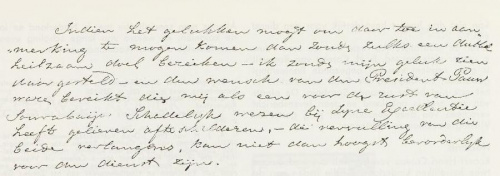 Indien het gelukken mogt om daar toe in aan-
merking te mogen komen dan zoude zulks een dubbel
heilzaam doel bereiken – ik zoude mijn geluk zien
daar gesteld – en den wensch van den President
ware bereikt die mij als een voor de rust van
Sourabaija wezen bij Zyne Excellentie
heeft gelieven af te schilderen, – de vervulling van die
beide verlangens, kan niet dan hoogst bevorderlyk
voor den dienst zijn.